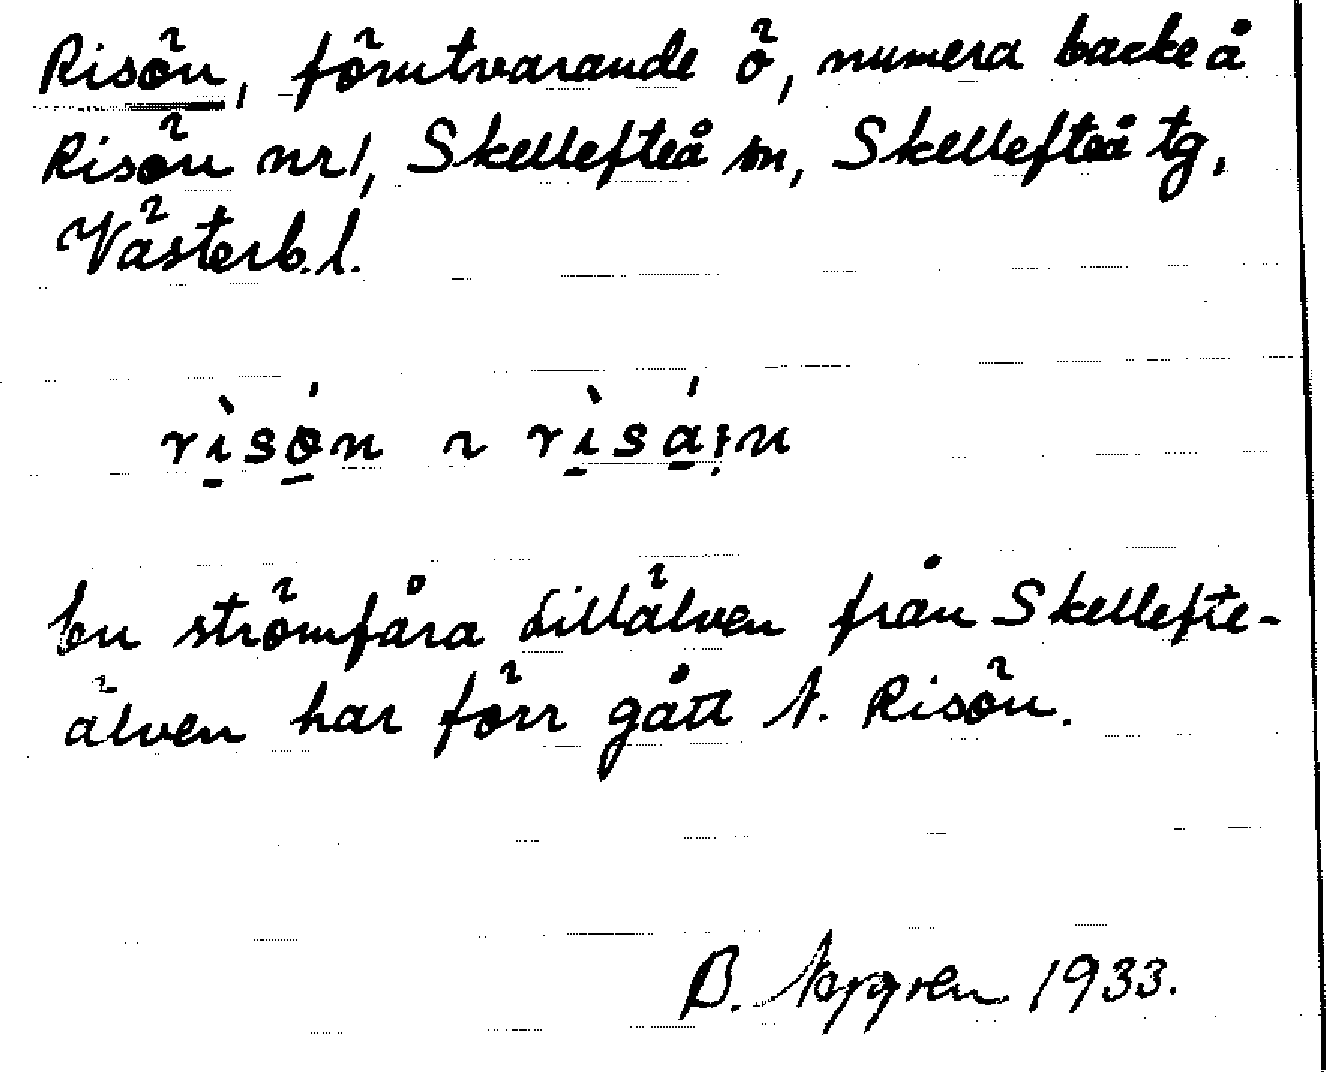 Risön, förutvarande ö, numera backe å
Risön nr 1, Skellefteå sn, Skellefteå tg,
Västerb. l.
rìsǿn ~ rìsá:n
En strömfåra Lillälven från Skellefte-
älven har förr gått N. Risön.
B. 1933.